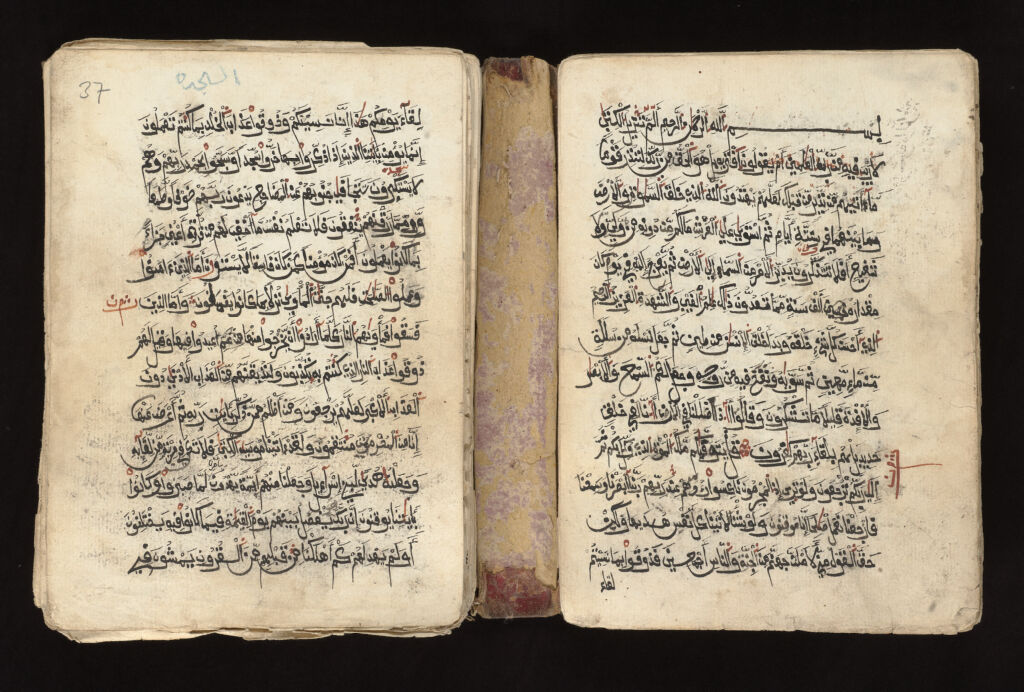 بسم الله الرحمن الرحيم الم تنزيل الكتب
لا ريب فيه من رب العلمين أم يقولون افتريه بل هو الحق من ربك لتنذر قوما
ما أتيهم من نذير من قبلك لعلهم يهتدون الله الذي خلق السموت والأرض
وما بينهما في ستة أيام ثم استوى على العرش ما لكم من دونه من ولي ولا
شفيع أفلا تتذكرون يدبر الأمر من السماء إلى الأرض ثم يعرج إليه في يوم كان
مقداره ألف سنة مما تعدون ذلك علم الغيب والشهدة العزيز الرحيم
الذي أحسن كل شيء خلقه وبدأ خلق الإنسن من طين ثم جعل نسله من سللة
من ماء مهين ثم سويه ونفخ فيه من روحه وجعل لكم السمع والأبصر
والأفئدة قليلا ما تشكرون وقالوا أءذا ضللنا في الأرض إنا لفي خلق
جديد بل هم بلقاء ربهم كفرون قل يتوفيكم ملك الموت الذي وكل بكم ثم
إلى ربكم ترجعون ولو ترى إذ المجرمون ناكسوا رءوسهم عند ربهم ربنا أبصرنا وسمعنا
فارجعنا نعمل صلحا إنا موقنون ولو شئنا لأتينا كل نفس هديها ولكن
حق القول مني لأملأن جهنم من الجنة والناس أجمعين فذوقوا بما نسيتم
لقاء
السجدة
37
لقاء يومكم هذا إنا نسينكم وذوقوا عذاب الخلد بما كنتم تعملون
إنما يؤمن بئايتنا الذين إذا ذكروا بها خروا سجدا وسبحوا بحمد ربهم وهم
لا يستكبرون تتجافى جنوبهم عن المضاجع يدعون ربهم خوفا وطمعا
ومما رزقنهم ينفقون فلا تعلم نفس ما أخفي لهم من قرة أعين جزاء
بما كانوا يعملون أفمن كان مؤمنا كمن كان فاسقا لا يستوون أما الذين ءامنوا
وعملوا الصلحت فلهم جنت المأوى نزلا بما كانوا يعملون وأما الذين
فسقوا فمأويهم النار كلما أرادوا أن يخرجوا منها أعيدوا فيها وقيل لهم
ذوقوا عذاب النار الذي كنتم به تكذبون ولنذيقنهم من العذاب الأدنى دون
العذاب الأكبر لعلهم يرجعون ومن أظلم ممن ذكر بئايت ربه ثم أعرض عنها
إنا من المجرمين منتقمون ولقد ءاتينا موسى الكتب فلا تكن في مرية من لقائه
وجعلنه هدى لبني إسراءيل وجعلنا منهم أئمة يهدون بأمرنا لما صبروا وكانوا
بئايتنا يوقنون إن ربك هو يفصل بينهم يوم القيمة فيما كانوا فيه يختلفون
أولم يهد لهم كم أهلكنا من قبلهم من القرون يمشون في